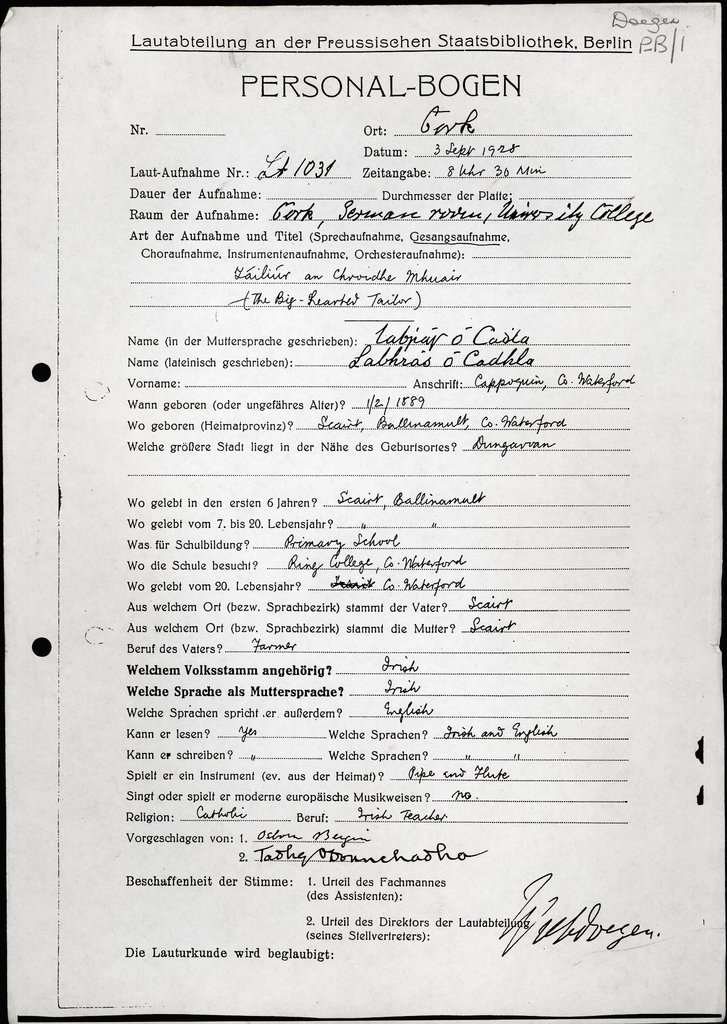 Doegen
Lautabteilung an der Preussischen Staatsbibliothek, Berlin PB/1
PERSONAL-BOGEN
Nr. Ort: Cork
Datum: 3 Sept 1928
Laut-Aufnahme Nr.: LA 1031 Zeitangabe: 8 Uhr 30 Min
Dauer der Aufnahme: Durchmesser der Platte:
Raum der Aufnahme: Cork, German room, University College
Art der Aufnahme und Titel (Sprechaufnahme, Gesangsaufnahme,
Choraufnahme, Instrumentenaufnahme, Orchesteraufnahme):
Táiliúr an Chroidhe Mhuair
(The Big-Hearted Tailor)
Name (in der Muttersprache geschrieben): Labhrás ó Cadla
Name (lateinisch geschrieben): Labhrás ó Cadhla
Vorname: Anschrift: Cappoquin, Co. Waterford
Wann geboren (oder ungefähres Alter)? 1/2/1889
Wo geboren (Heimatprovinz)? Scairt, Ballinamult, Co. Waterford
Welche größere Stadt liegt in der Nähe des Geburtsortes? Dungarvan
Wo gelebt in den ersten 6 Jahren? Scairt, Ballinamult
Wo gelebt vom 7. bis 20. Lebensjahr? " "
Was für Schulbildung? Primary School
Wo die Schule besucht? Ring College, Co. Waterford
Wo gelebt vom 20. Lebensjahr? Scairt Co. Waterford
Aus welchem Ort (bezw. Sprachbezirk) stammt der Vater? Scairt
Aus welchem Ort (bzw. Sprachbezirk) stammt die Mutter? Scairt
Beruf des Vaters? Farmer
Welchem Volksstamm angehörig? Irish
Welche Sprache als Muttersprache? Irish
Welche Sprachen spricht er außerdem? English
Kann er lesen? Yes Welche Sprachen? Irish and English
Kann er schreiben? " Welche Sprachen? " "
Spielt er ein Instrument (ev. aus der Heimat)? Pipe and Flute
Singt oder spielt er moderne europäische Musikweisen? no.
Religion: Catholic Beruf: Irish Teacher.
Vorgeschlagen von: 1. Osborn Bergin
2. Tadhg O Donnchadha
Beschaffenheit der Stimme: 1. Urteil des Fachmannes
(des Assistenten):
2. Urteil des Direktors der Lautabteilung
(seines Stellvertreters):
Doegen.
Die Lauturkunde wird beglaubigt: